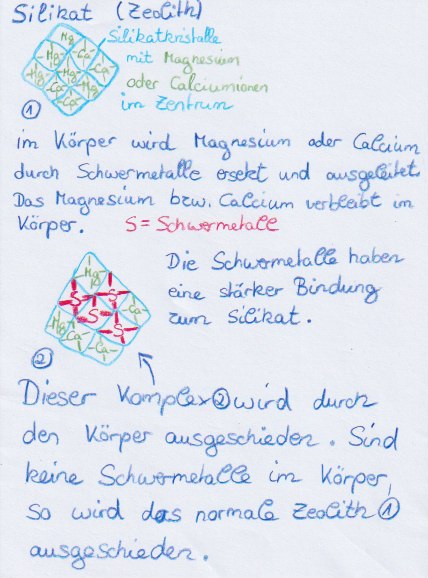 Silikat (Zeolith)
Silikatkristalle
mit Magnesium
oder Calciumionen
im Zentrum
Mg
Mg Ca
Mg Ca Ca
Ca Mg
Ca
①
im Körper wird Magnesium oder Calcium
durch Schwermetalle ersetzt und ausgeleitet.
Das Magnesium bzw. Calcium verbleibt im
Körper. S = Schwermetalle
Die Schwermetalle haben
eine stärker Bindung
zum Silikat.
Mg
S S Ca
Mg S S
Ca Ca
②
Dieser Komplex ② wird durch
den Körper ausgeschieden. Sind
keine Schwermetalle im Körper,
so wird das normale Zeolith ①
ausgeschieden.